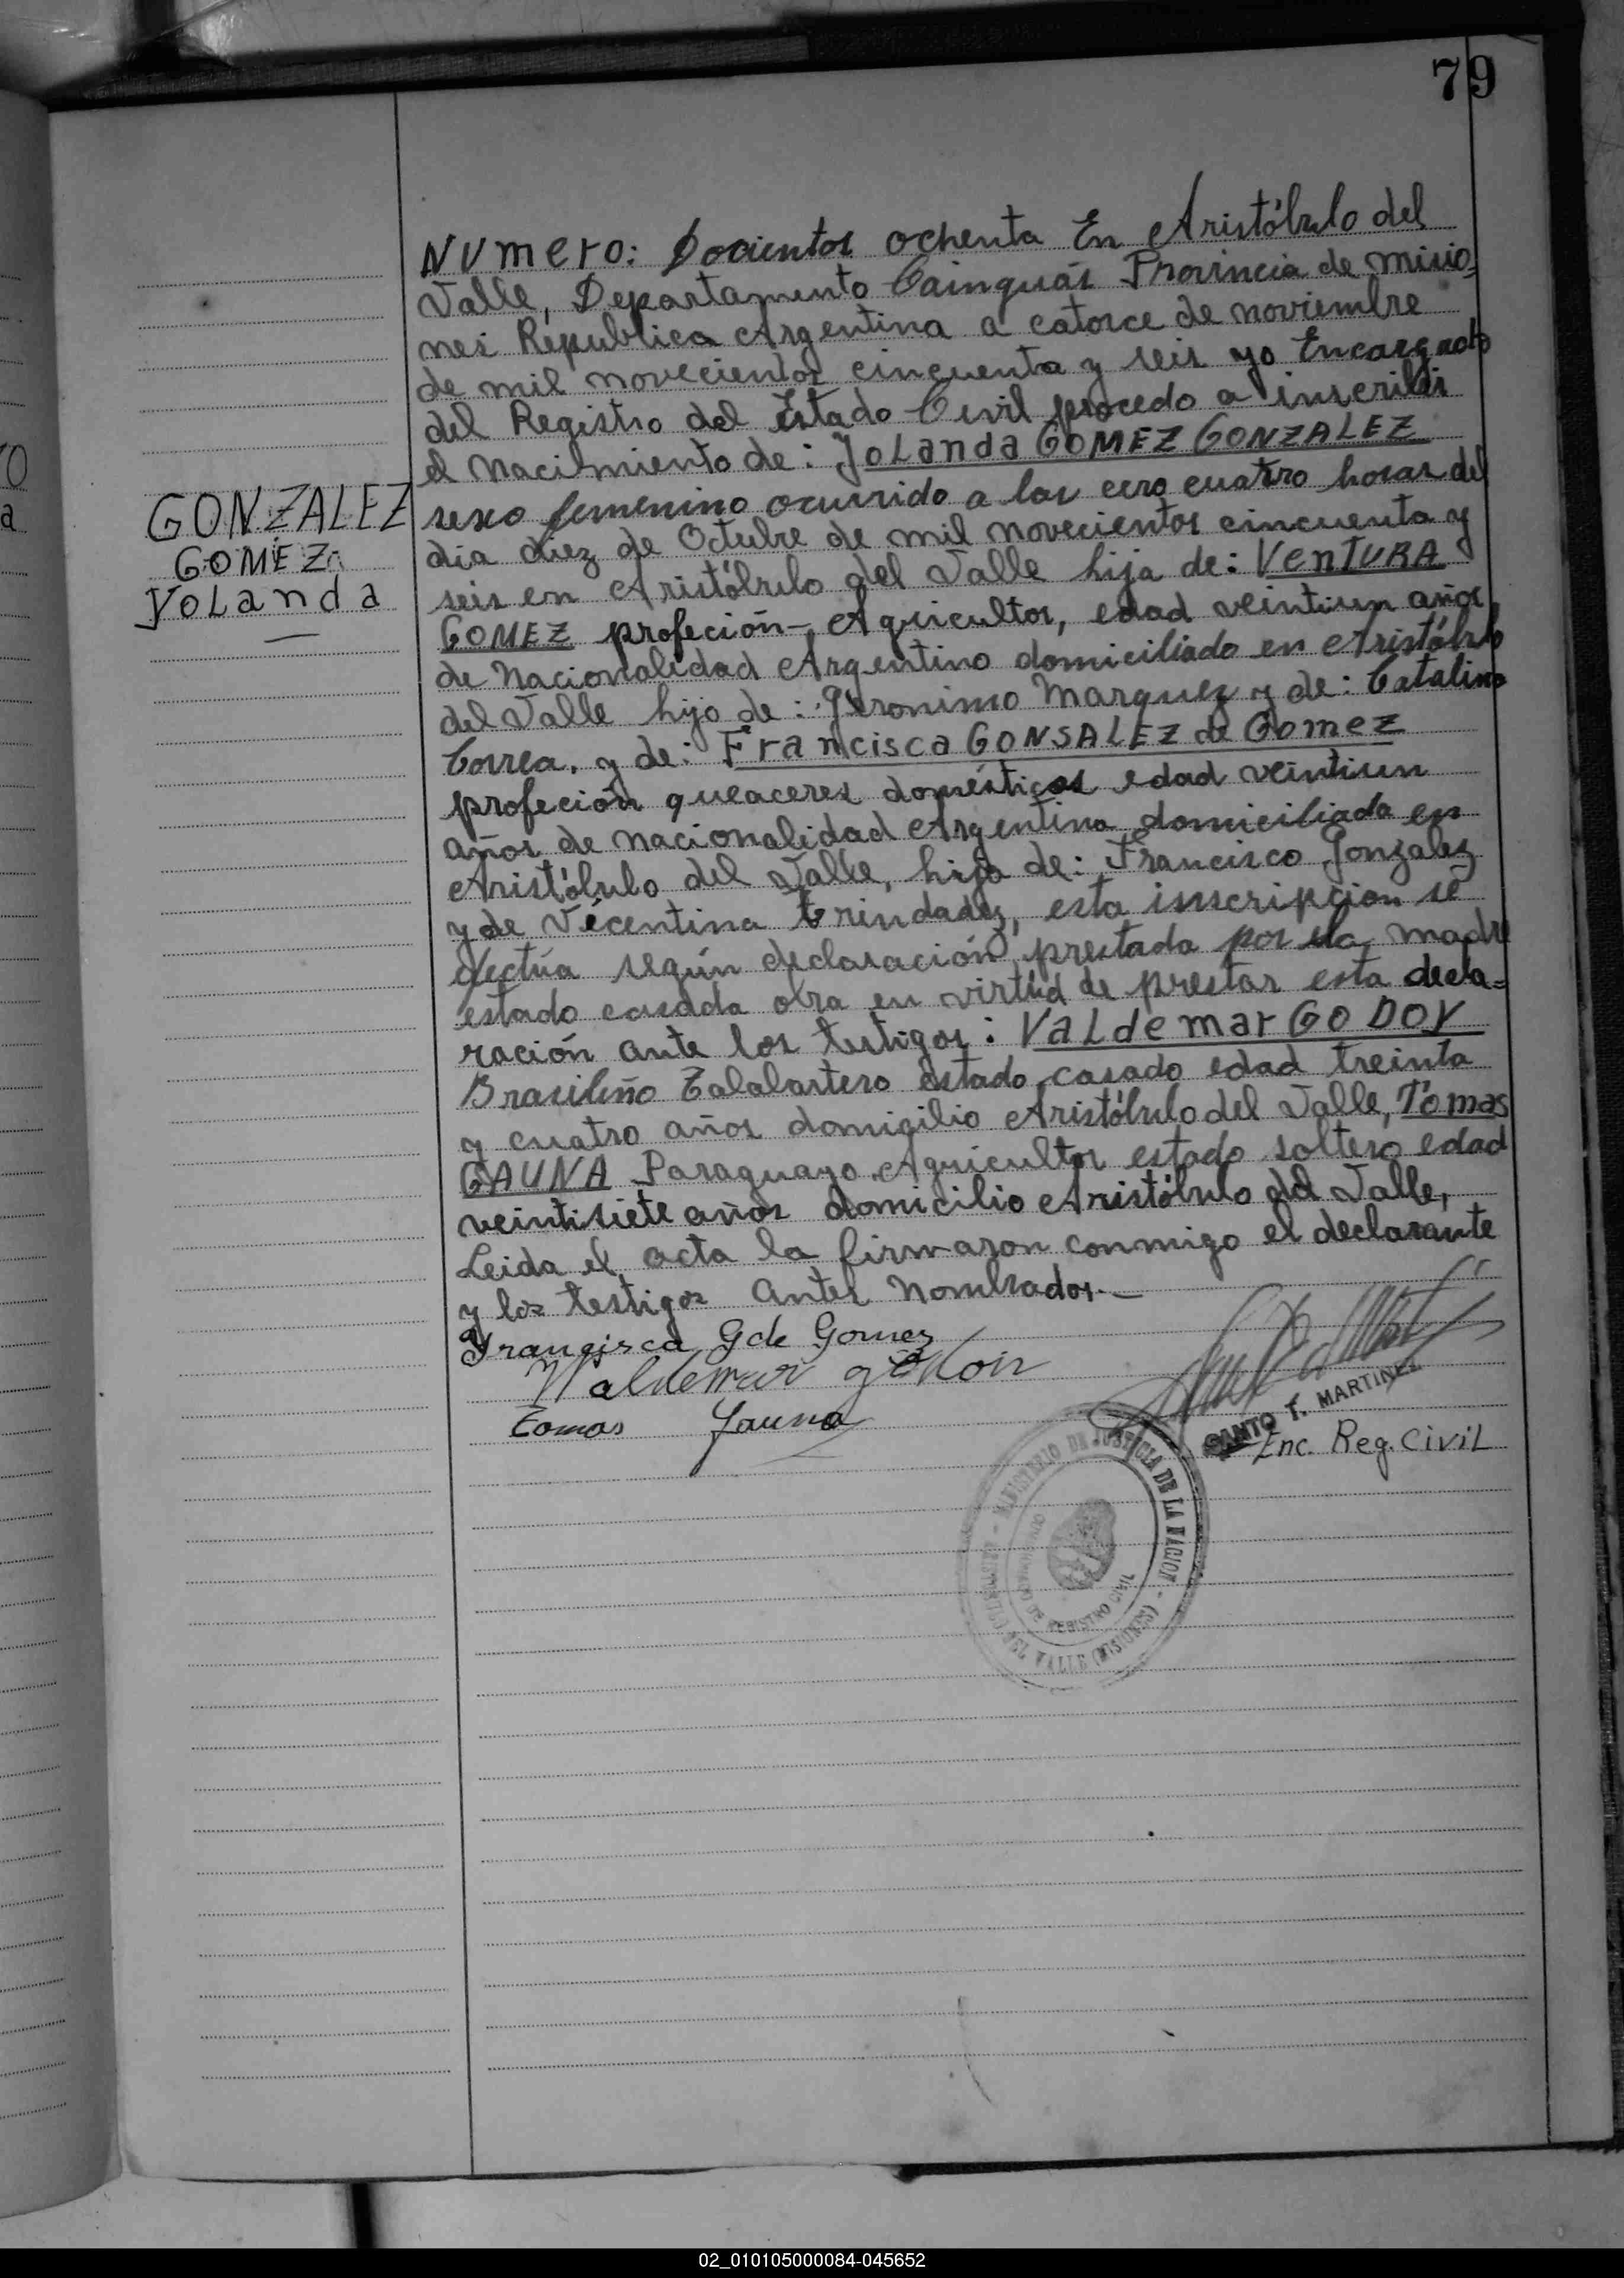 79
NUmero: Docientos ochenta En Aristóbulo del
Valle, Departamento Cainguás Provincia de Misio-
nes Republica Argentina a catorce de noviembre
de mil novecientos cincuenta y seis yo Encargado
del Registro del Estado Civil procedo a inscribir
el Nacimiento de: YoLanda GOMEZ GONZALEZ
GONZALEZ
GOMEZ
YoLanda
sexo femenino ocurrido a las cero cuatro horas del
dia diez de Octubre de mil novecientos cincuenta y
seis en Aristóbulo del Valle hija de: VenTURA
GOMEZ profeción-, Agricultor, edad veintiun años
de Nacionalidad Argentino domiciliado en Aristóbulo
del Valle hijo de: Geronimo Marquez y de: Catalina
Correa. y de: Francisca GONSALEZ de Gomez
profeción queaceres domésticos edad veintiun
años de nacionalidad Argentina domiciliada en
Aristóbulo del Valle, hija de: Francisco Gonzalez
y de Vicentina Trindadez, esta inscripcion se
efectúa según declaración prestada por la madre
estado casada obra en virtúd de prestar esta decla=
ración ante los testigos: VaLdemar GODOY
Brasileño Talabartero estado casado edad treinta
y cuatro años domicilio Aristóbulo del Valle, Tomas
GAUNA Paraguayo Agricultor estado soltero edad
veintisiete años domicilio Aristóbulo del Valle,
Leida el acta la firmaron conmigo el declarante
y los testigos antes nombrados.-
Francisca G de Gomez
Waldemar
Tomas Gauna
SANTO T. MARTINEZ
Enc. Reg. CiviL
MINISTERIO DE JUSTICIA DE LA NACION -
REGISTRO CIVIL
DEL VALLE (MISIONES)
02_010105000084-045652